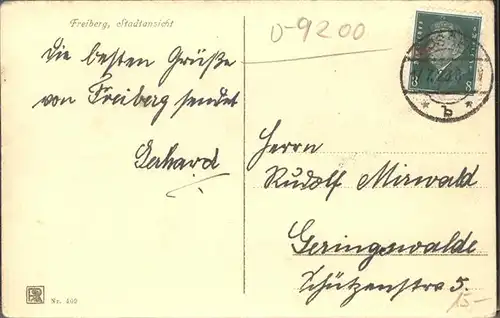 Freiberg, Stadtansicht
U-9200
Die besten Grüße
von Freiberg sendet
Gerhard
Herrn
Rudolf Mirwald
Geringswalde
Schützenstra 5.
15-
8 8
* b *
Nr. 400